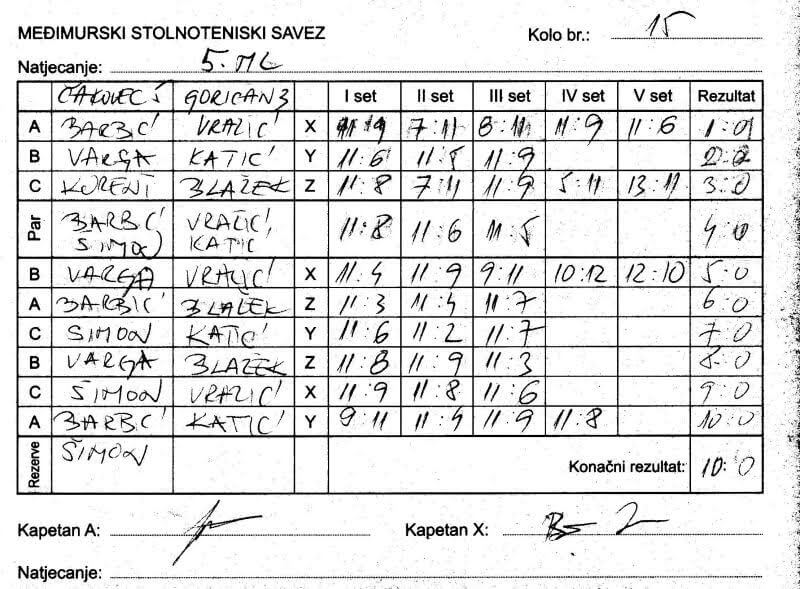 MEĐIMURSKI STOLNOTENISKI SAVEZ
Kolo br.: 15
Natjecanje: 5. ML
ČAKOVEC 5 GORIČAN 3 I set II set III set IV set V set Rezultat
A BARBIĆ VRAŽIĆ X 11:9 7:11 8:11 11:9 11:6 1:0
B VARGA KATIĆ Y 11:6 11:5 11:9 2:0
C KORENT BLAŽEK Z 11:8 7:11 11:9 5:11 13:11 3:0
Par BARBIĆ VRAŽIĆ, 11:8 11:6 11:5 4:0
ŠIMON KATIĆ
B VARGA VRAŽIĆ X 11:4 11:9 9:11 10:12 12:10 5:0
A BARBIĆ BLAŽEK Z 11:3 11:4 11:7 6:0
C ŠIMON KATIĆ Y 11:6 11:2 11:7 7:0
B VARGA BLAŽEK Z 11:8 11:9 11:3 8:0
C ŠIMON VRAŽIĆ X 11:9 11:8 11:6 9:0
A BARBIĆ KATIĆ Y 9:11 11:4 11:9 11:8 10:0
Rezerve ŠIMON Konačni rezultat: 10:0
Kapetan A: Kapetan X:
Natjecanje: